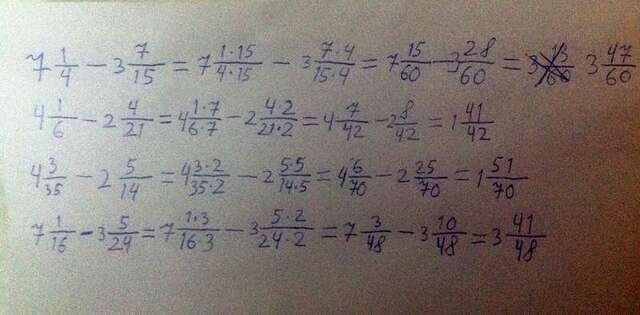 7 1/4 − 3 7/15 = 7 1·15/4·15 − 3 7·4/15·4 = 7 15/60 − 3 28/60 = 3 47/60
4 1/6 − 2 4/21 = 4 1·7/6·7 − 2 4·2/21·2 = 4 7/42 − 2 8/42 = 1 41/42
4 3/35 − 2 5/14 = 4 3·2/35·2 − 2 5·5/14·5 = 4 6/70 − 2 25/70 = 1 51/70
7 1/16 − 3 5/24 = 7 1·3/16·3 − 3 5·2/24·2 = 7 3/48 − 3 10/48 = 3 41/48